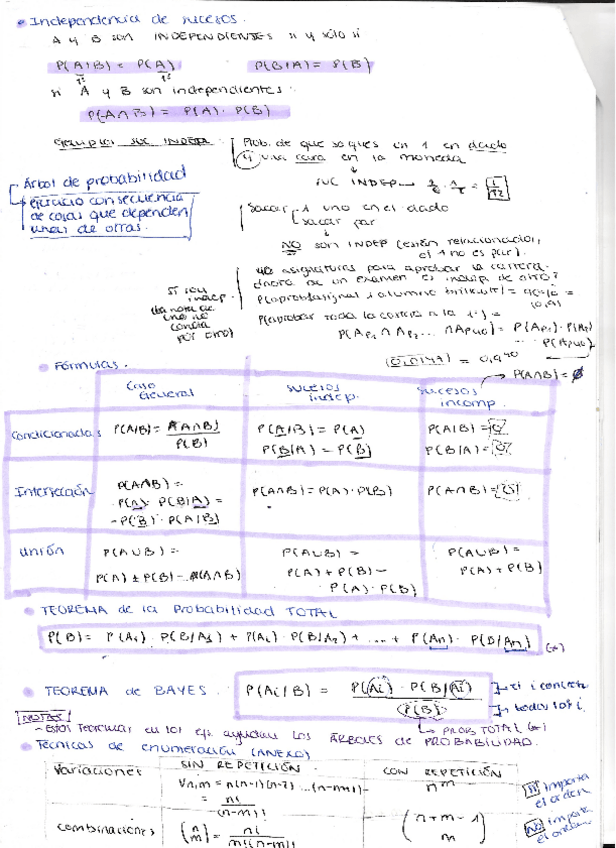 Independencia de sucesos.
A y B son INDEPENDIENTES si y sólo si
P(A|B) = P(A) P(B|A) = P(B)
si A y B son independientes.
P(A∩B) = P(A) · P(B)
Ejemplo suc INDEP.
Prob. de que saques un 1 en dado
y una cara en la moneda
suc INDEP → 1/6 · 1/2 = 1/12
Árbol de probabilidad
ejercicio consecuencia
de cosas que dependen
unas de otras.
Sacar 1 uno en el dado
sacar par
NO son INDEP (están relacionados,
el 1 no es par).
40 asignaturas para aprobar la carrera.
de un examen es indep. de otro?
si son
indep.
(la nota de
uno no
por otro)
P(aprobar toda la carrera a la 1ª) =
P(Ap1 ∩ Ap2 ... ∩ Ap40) = P(Ap1) · P(Ap2)
P(Ap40)
= 0,940
P(A∩B) = ∅
Fórmulas.
Caso General
Sucesos indep.
Sucesos incomp.
Condicionadas P(A/B) = P(A∩B) / P(B) P(A/B) = P(A) P(A/B) =
P(B/A) = P(B) P(B/A) =
Intersección P(A∩B) = P(A∩B) = P(A) · P(B) P(A∩B) =
P(A) · P(B/A) =
= P(B) · P(A/B)
Unión P(A∪B) = P(A∪B) = P(A∪B) =
P(A) + P(B) - P(A∩B) P(A) + P(B) - P(A) + P(B)
P(A) · P(B)
TEOREMA de la Probabilidad TOTAL
P(B) = P(A1) · P(B/A1) + P(A2) · P(B/A2) + ... + P(An) · P(B/An) (*)
TEOREMA de BAYES. P(Ai/B) = P(Ai) · P(B/Ai) / P(B)
el i concreto
todos los i.
PROB TOTAL (*)
NOTAS
- Estos Teoremas en los ejs. ayudan los ÁRBOLES de PROBABILIDAD.
Técnicas de enumeración (ANEXO)
SIN REPETICIÓN CON REPETICIÓN
Variaciones Vn,m = n(n-1)(n-2) ... (n-m+1) n^m
= n! / (n-m)!
SI importa
el orden
Combinaciones (n m) = n! / m!(n-m)! (n+m-1 m)
NO importa
el orden